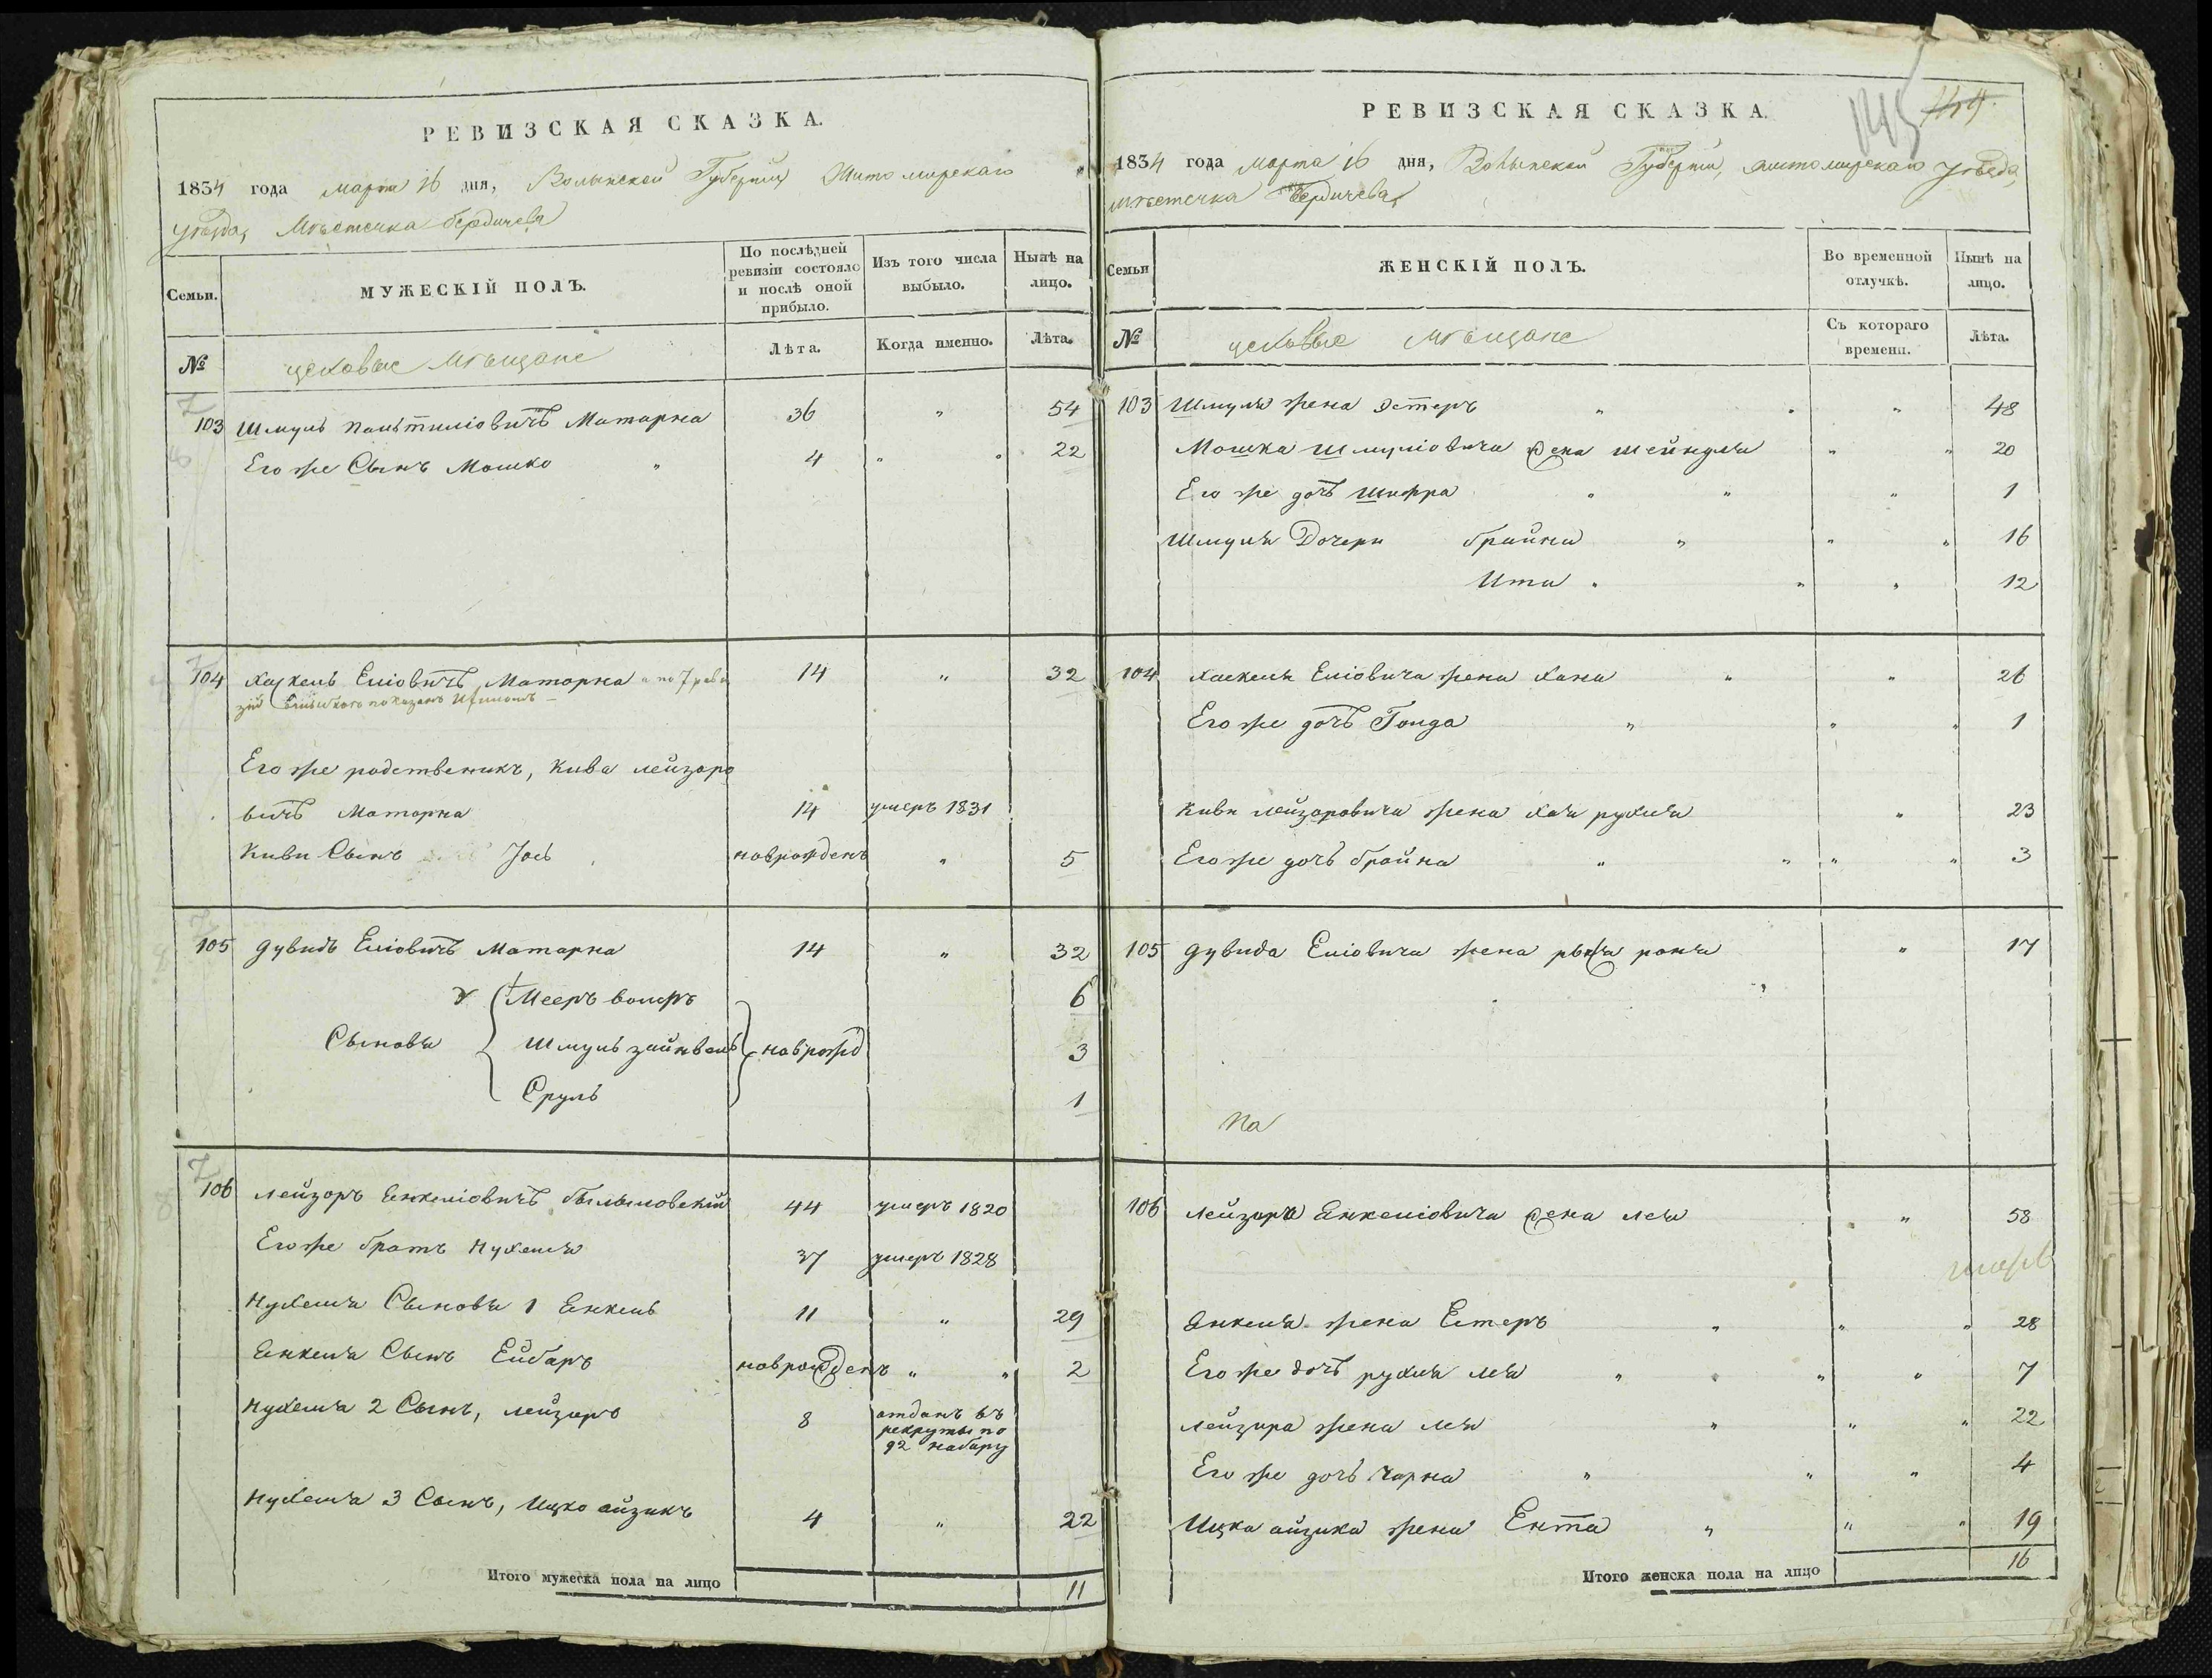 РЕВИЗСКАЯ СКАЗКА.
1834 года марта 16 дня, Волынской Губерніи Житомирскаго
уѣзда, Мѣстечка бердичева
Семьи.
МУЖЕСКІЙ ПОЛЪ.
По послѣдней ревизіи состояло и послѣ оной прибыло.
Изъ того числа выбыло.
Нынѣ на лицо.
№
цеховые мѣщане
Лѣта.
Когда именно.
Лѣта.
103 Шмуль Матарна 36 " 54
Его же Сынъ Мошко " 4 " " 22
104 Хаскель Еліовичъ Маторна а по 7 реви 14 " 32
зіи показанъ
Его же родственикъ, Кива лейзоро
вичъ Маторна 14 умеръ 1831
Киви Сынъ Јось новрожденъ " 5
105 дувидъ Еліовичъ Матарна 14 " 32
Мееръ вольфъ 6
Сыновья Шмуль зайнвель новрожд 3
Сруль 1
106 лейзоръ Енкеліовичъ 44 умеръ 1820
Его же братъ Нухемъ 37 умеръ 1828
Нухема Сыновья 1 Енкель 11 " 29
Енкеля Сынъ Ейбаръ новрожденъ " " 2
Нухема 2 Сынъ, лейзоръ 8 отданъ въ
рекруты по
92 набору
Нухема 3 Сынъ, Ицко айзикъ 4 " 22
Итого мужеска пола на лицо 11
145 149
РЕВИЗСКАЯ СКАЗКА.
1834 года марта 16 дня, Волынской Губерніи, житомирскаго уѣзда,
мѣстечка Бердичева
Семьи
ЖЕНСКІЙ ПОЛЪ.
Во временной отлучкѣ.
Нынѣ на лицо.
№
цеховые мѣщане
Съ котораго времени.
Лѣта.
103 Шмуля жена Эстеръ " " " 48
Мошка Шмуліовича жена шейндля " " 20
Его же дочь Шифра " " " 1
Шмуля Дочери брайна " " " 16
Ита " " " 12
104 Хаскеля Еліовича жена Хана " " 26
Его же дочь Голда " " " 1
Киви лейзоровича жена хая рухля " 23
Его же дочь брайна " " " " 3
105 дувида Еліовича жена " 17
на
106 лейзора Янкеліовича жена лея " 58
умеръ
Янкеля жена Естеръ " " " 28
Его же дочь рухля лея " " " " 7
лейзора жена лея " " " 22
Его же дочь Чарна " " " 4
Ицка айзика жена Ента " " " 19
Итого женска пола на лицо 16